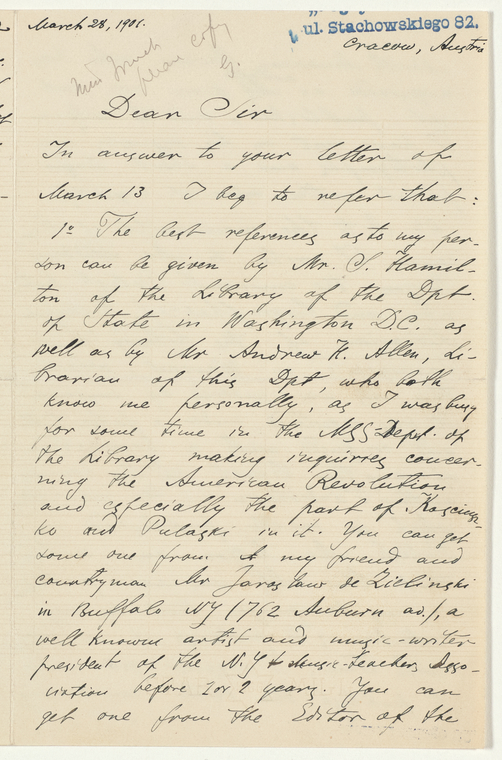 March 28, 1901.
ul. Stachowskiego 82.
Cracow, Austria
Miss
please copy
G.
Dear Sir
In answer to your letter of
March 13 I beg to refer that:
1º The best references as to my per-
son can be given by Mr. S. Hamil-
ton of the Library of the Dpt.
of State in Washington D.C. as
well as by Mr Andrew H. Allen, li-
brarian of this Dpt, who both
know me personally, as I was busy
for some time in the MSS Dept. of
the Library making inquires concer-
ning the American Revolution
and especially the part of Kosciusz-
ko and Pulaski in it. You can get
some one from my friend and
countryman Mr Jaroslaw de Zielinski
in Buffalo NY (762 Auburn av.), a
well knowne artist and music-writer
president of the N.Y Music-teachers Asso-
ciation before 1 or 2 years. You can
get one from the Editor of the